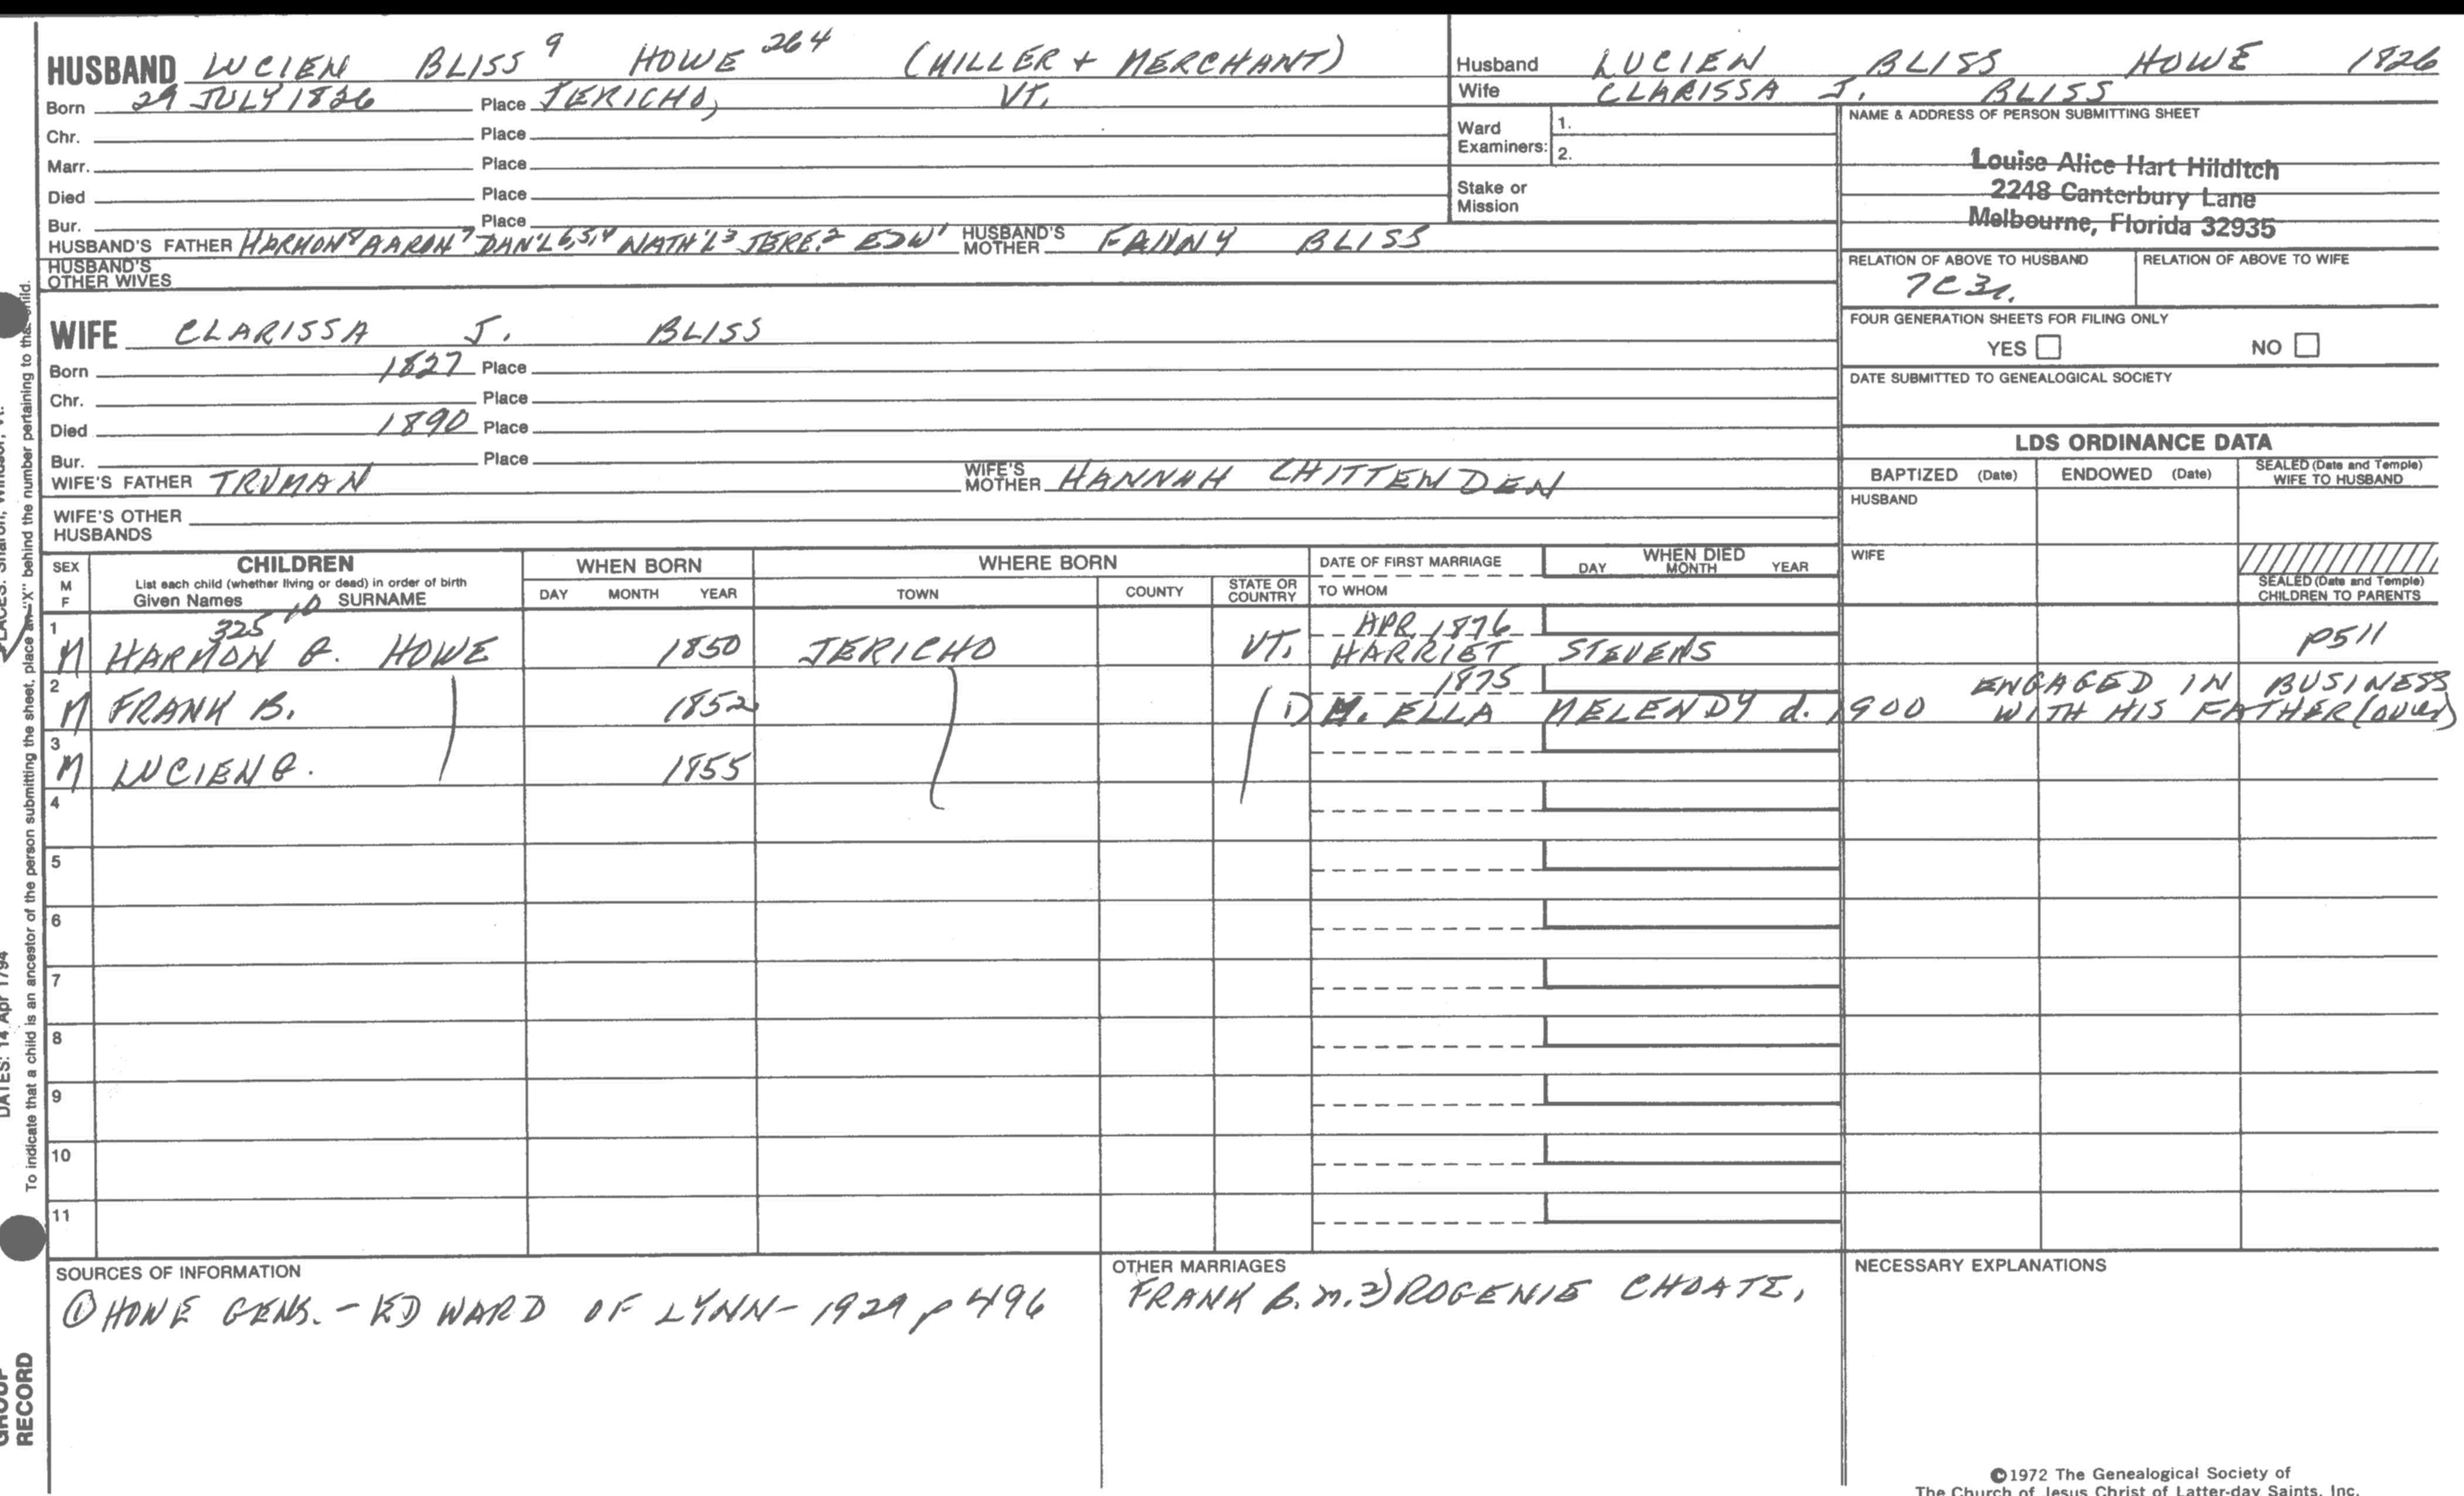 HUSBAND LUCIEN BLISS 9 HOWE 264 (MILLER + MERCHANT)
Born 29 JULY 1826 Place JERICHO, VT.
Chr. Place
Marr. Place
Died Place
Bur. Place
HUSBAND'S FATHER HARMON8 AARON7 DAN'L6,5,4 NATH'L3 JERE.2 EDW1 HUSBAND'S MOTHER FANNY BLISS
HUSBAND'S OTHER WIVES
Husband LUCIEN BLISS HOWE 1826
Wife CLARISSA J. BLISS
Ward Examiners: 1.
2.
Stake or Mission
NAME & ADDRESS OF PERSON SUBMITTING SHEET
Louise Alice Hart Hilditch
2248 Canterbury Lane
Melbourne, Florida 32935
RELATION OF ABOVE TO HUSBAND RELATION OF ABOVE TO WIFE
7C3r.
FOUR GENERATION SHEETS FOR FILING ONLY
YES NO
DATE SUBMITTED TO GENEALOGICAL SOCIETY
WIFE CLARISSA J. BLISS
Born 1827 Place
Chr. Place
Died 1890 Place
Bur. Place
WIFE'S FATHER TRUMAN WIFE'S MOTHER HANNAH CHITTENDEN
WIFE'S OTHER HUSBANDS
LDS ORDINANCE DATA
BAPTIZED (Date) ENDOWED (Date) SEALED (Date and Temple) WIFE TO HUSBAND
HUSBAND
WIFE
SEALED (Date and Temple) CHILDREN TO PARENTS
SEX M F CHILDREN List each child (whether living or dead) in order of birth Given Names SURNAME
WHEN BORN DAY MONTH YEAR
WHERE BORN TOWN COUNTY STATE OR COUNTRY
DATE OF FIRST MARRIAGE TO WHOM
WHEN DIED DAY MONTH YEAR
325 10 APR 1876
1 M HARMON G. HOWE 1850 JERICHO VT. HARRIET STEVENS p511
1875 ENGAGED IN BUSINESS
2 M FRANK B. 1852 1) M. ELLA MELENDY d. 1900 WITH HIS FATHER (over)
3 M LUCIEN G. 1855
4
5
6
7
8
9
10
11
SOURCES OF INFORMATION
① HOWE GENS. - EDWARD OF LYNN - 1929 p 496
OTHER MARRIAGES
FRANK B. m. 2) ROGENIE CHOATE.
NECESSARY EXPLANATIONS
©1972 The Genealogical Society of
The Church of Jesus Christ of Latter-day Saints, Inc.
To indicate that a child is an ancestor of the person submitting the sheet, place an "X" behind the number pertaining to that child.
DATES: 14 Apr 1794
GROUP RECORD